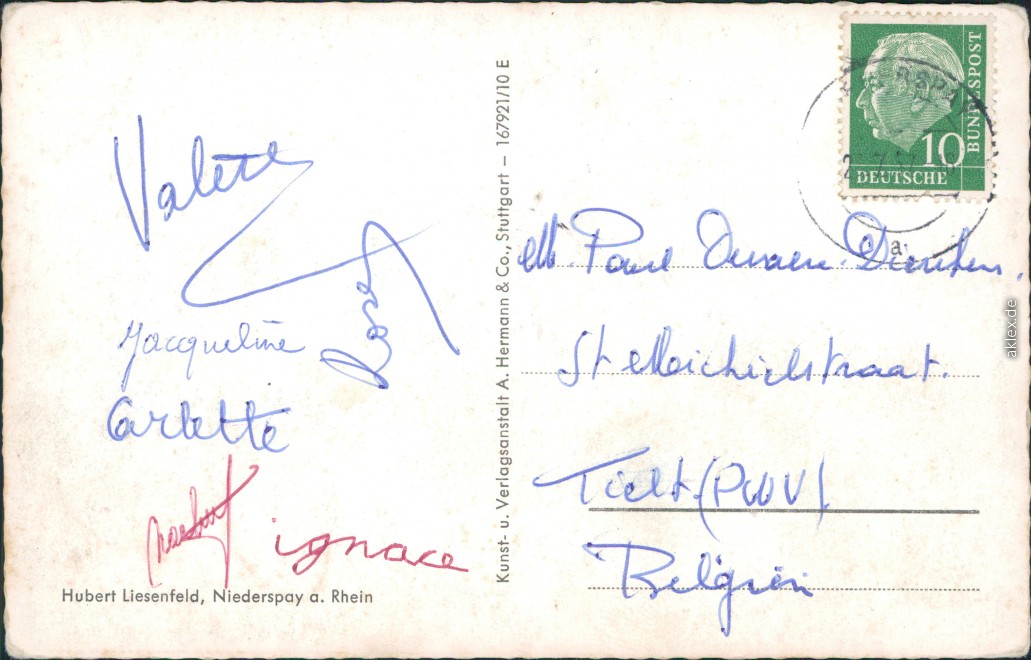 Valette
Rose
Jacqueline
Arlette
ignace
Hubert Liesenfeld, Niederspay a. Rhein
Kunst- u. Verlagsanstalt A. Hermann & Co., Stuttgart – 167921/10 E
BUNDESPOST
10
DEUTSCHE
a
M. Paul
St Michielstraat.
Tielt (PWV).
Belgien
aklex.de